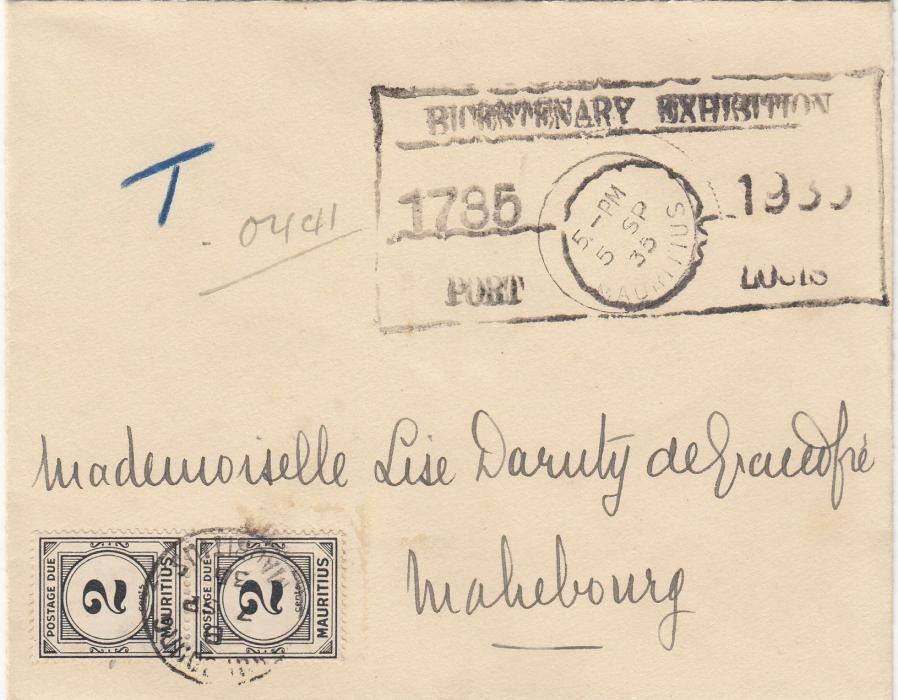 BICENTENARY EXHIBITION
1735 1935
5 - PM
5 SP
35
MAURITIUS
PORT LOUIS
T
0441
Mademoiselle Lise Daruty de Grandpré
Mahebourg
POSTAGE DUE 2 cents MAURITIUS
POSTAGE DUE 2 cents MAURITIUS